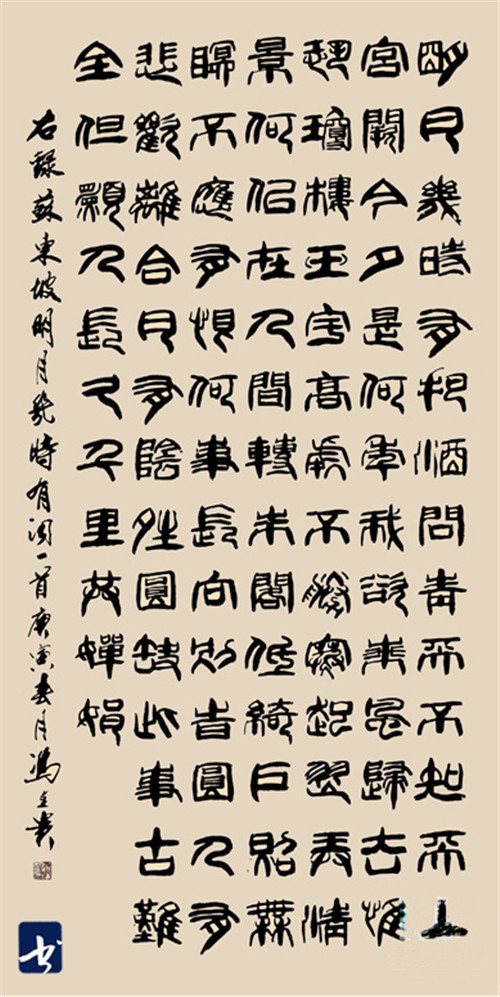 明月幾時有把酒問青天不知天上
宮闕今夕是何年我欲乘風歸去惟
恐瓊樓玉宇高處不勝寒起舞弄清
景何佀在人間轉朱閣低綺戶照無
眠不應有恨何事長向別旹圓人有
悲歡離合月有陰晴圓缺此事古難
全但願人長久千里共嬋娟
右錄蘇東坡明月幾時有詞一首庚寅春月馮